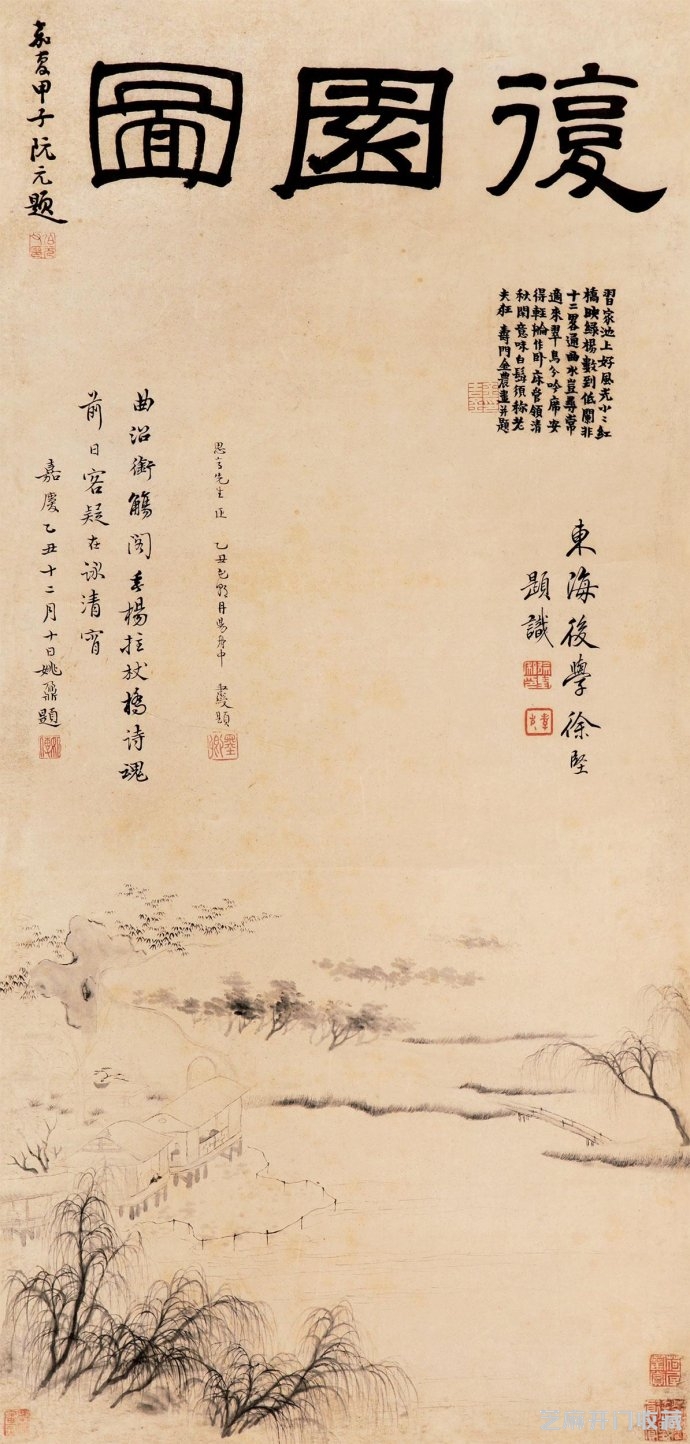 復園圖
嘉慶甲子阮元題
習家池上好風光小〻紅
橋映綠楊數到低闌非
十二畧通曲水豈尋常
適來翠鳥兮吟席安
得輕橈作卧床管領清
秋閑意味白髮須称老
夫狂 壽門金農畫并題
東海後學徐堅
題識
思言先生正 乙丑
畫題
曲沼銜觴閣垂楊拄杖橋詩魂
前日客疑在詠清宵
嘉慶乙丑十二月十日姚鼐題
艺麻开门收藏